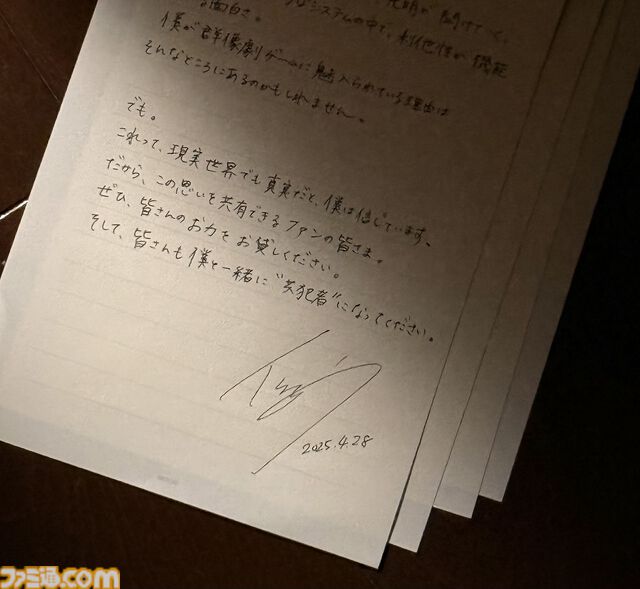 光明が開けてく
面白さ。
システムの中で、利他性が機能
僕が群像劇ゲームに魅入られている理由は
そんなところにあるのかもしれません。
でも。
これって、現実世界でも真実だと、僕は信じています、
だから、この思いを共有できるファンの皆さま。
ぜひ、皆さんのお力をお貸しください。
そして、皆さんも僕と一緒に“共犯者”になってください。
2025.4.28
ファミ通.com